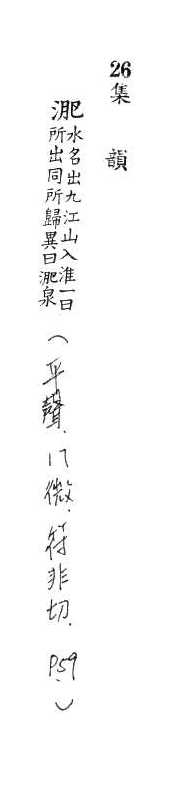 26集韻
淝水名出九江山入淮一曰
所出同所歸異曰淝泉
(平聲.17微.符非切.P.59.)